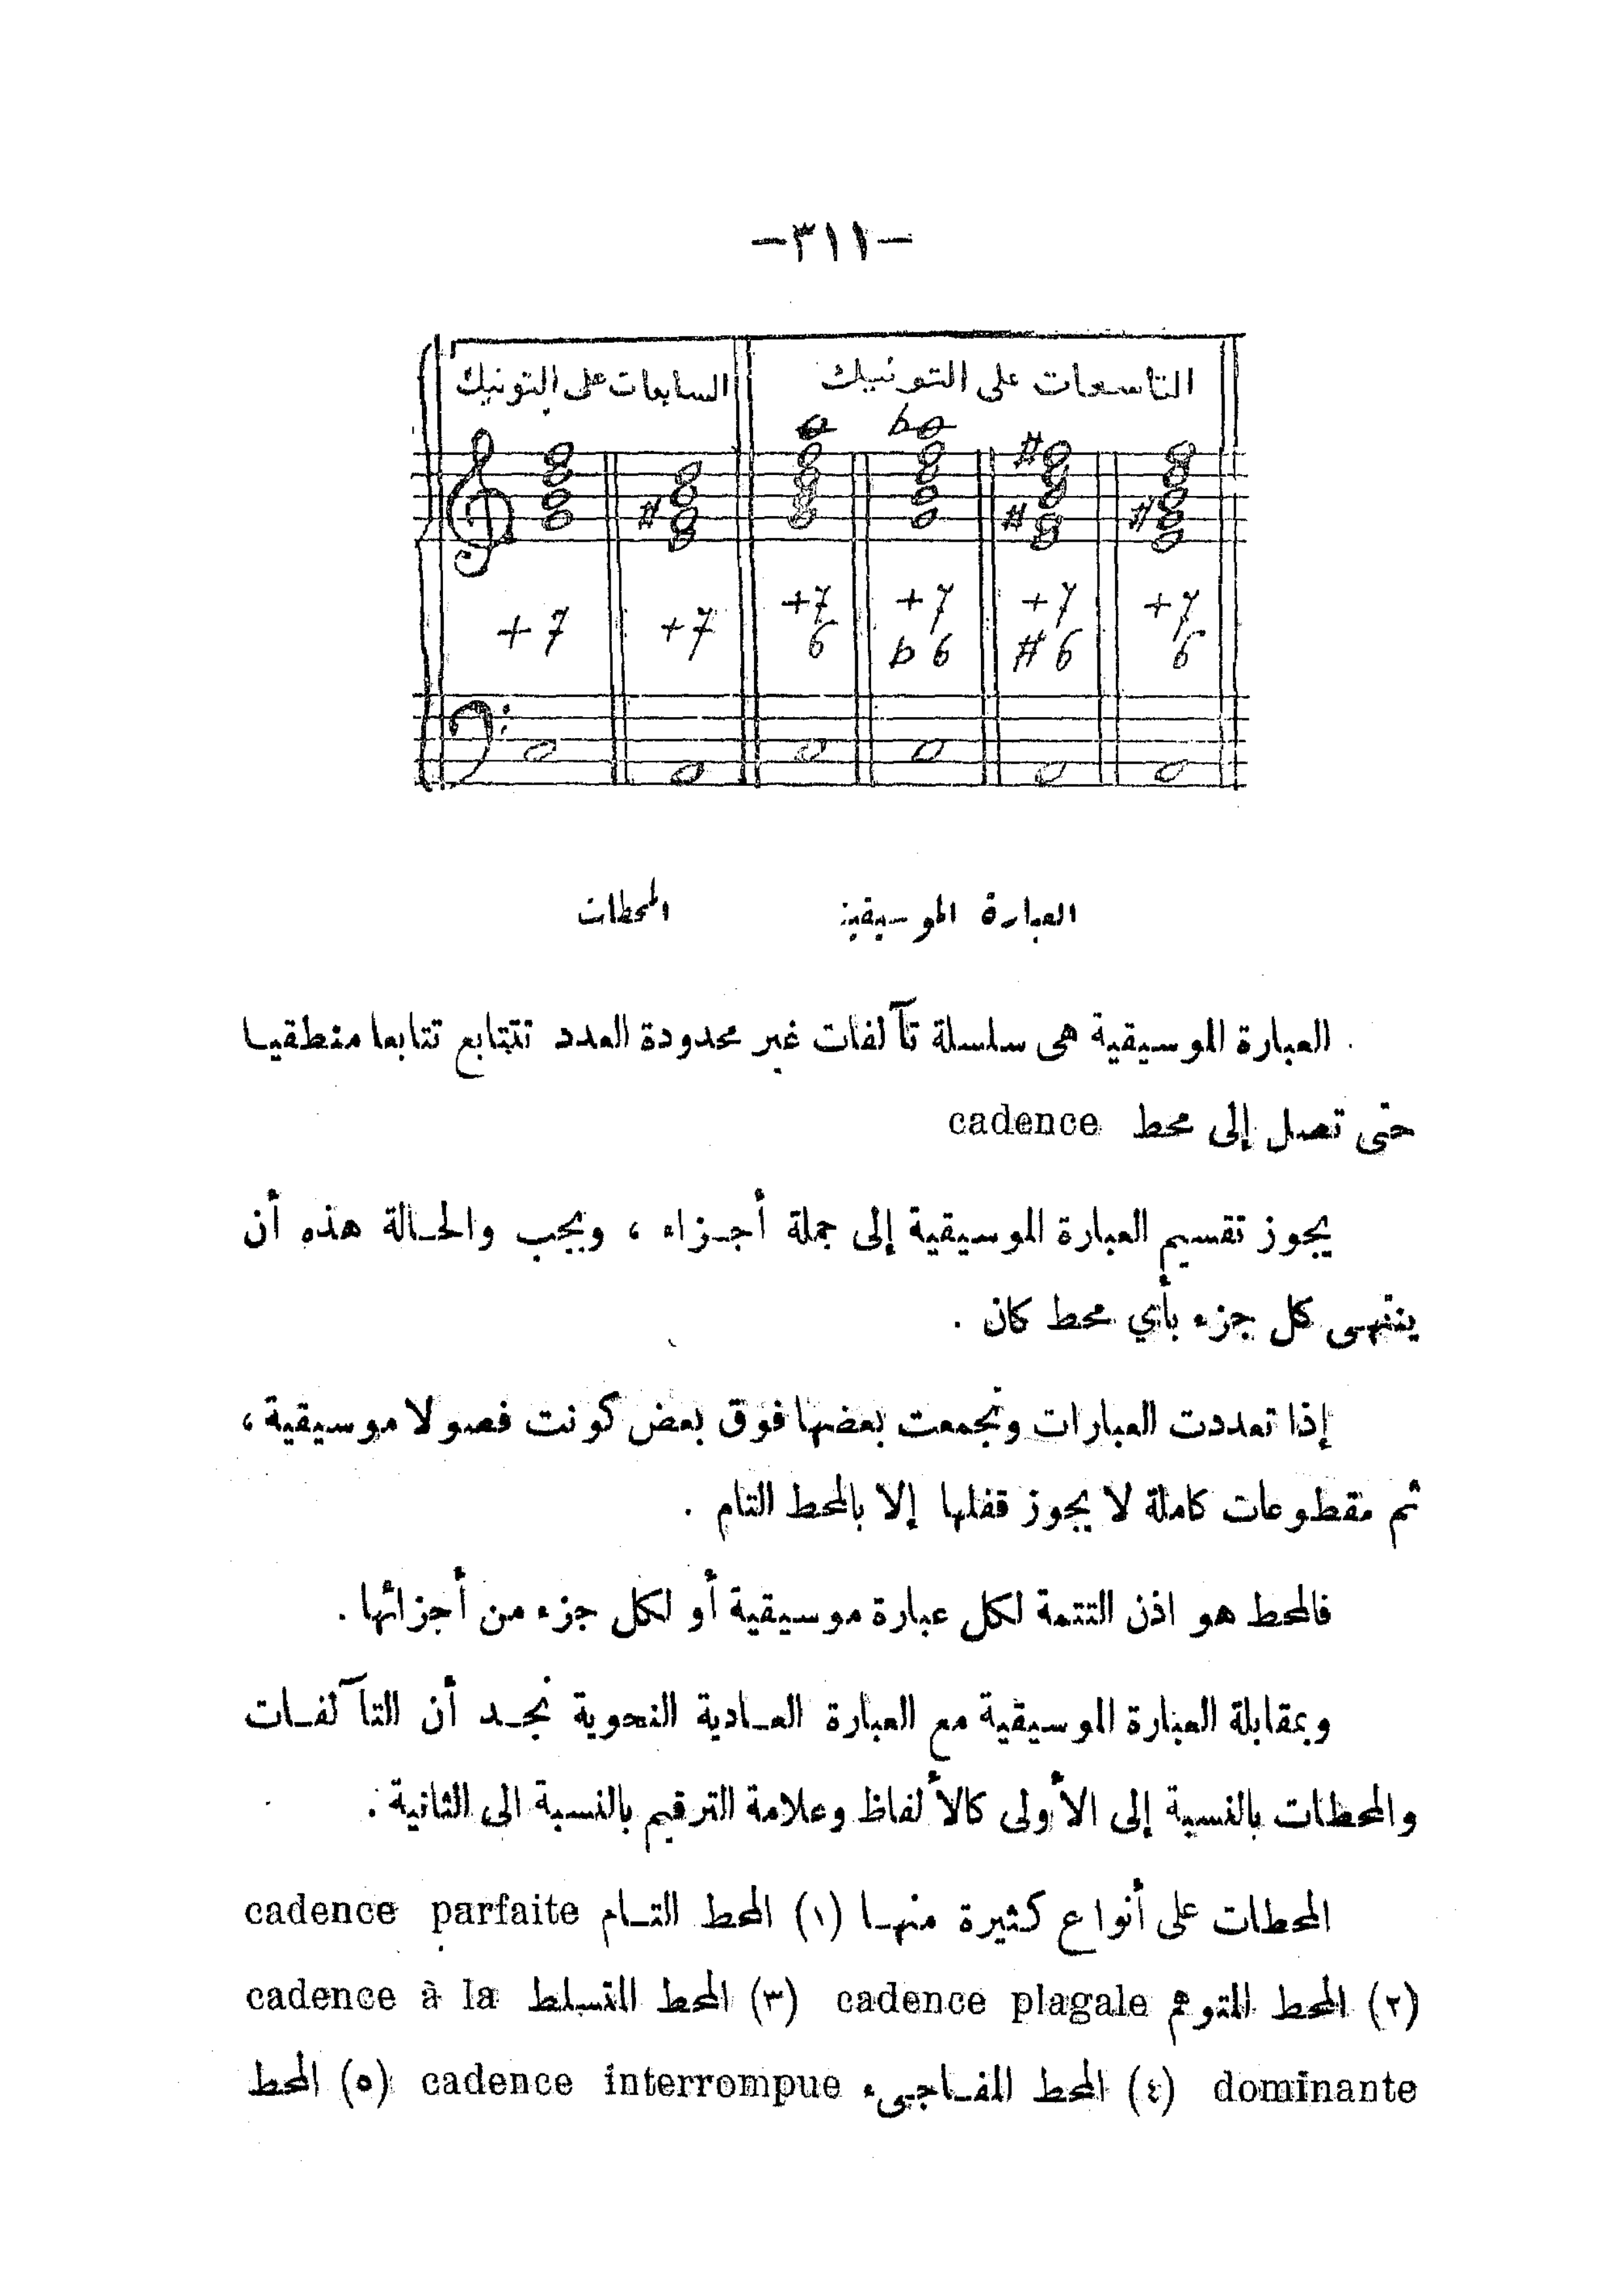 —٣١١—
التاسعات على التونيك السابعات على التونيك
+7 +7 +7 +7 +7 +7
6 b6 #6 6
العبارة الموسيقية المحطات
العبارة الموسيقية هى سلسلة تآلفات غير محدودة العدد تتتابع تتابعا منطقيا
حتى تصل إلى محط cadence
يجوز تقسيم العبارة الموسيقية إلى جملة أجزاء ، ويجب والحالة هذه أن
ينتهى كل جزء بأي محط كان .
إذا تعددت العبارات وتجمعت بعضها فوق بعض كونت فصولا موسيقية ،
ثم مقطوعات كاملة لا يجوز قفلها إلا بالمحط التام .
فالمحط هو اذن التتمة لكل عبارة موسيقية أو لكل جزء من أجزائها .
وبمقابلة العبارة الموسيقية مع العبارة العادية النحوية نجد أن التآلفات
والمحطات بالنسبة إلى الأولى كالألفاظ وعلامة الترقيم بالنسبة الى الثانية .
المحطات على أنواع كثيرة منها (١) المحط التام cadence parfaite
(٢) المحط cadence plagale (٣) المحط المتسلط cadence à la
dominante (٤) المحط المفاجىء cadence interrompue (٥) المحط